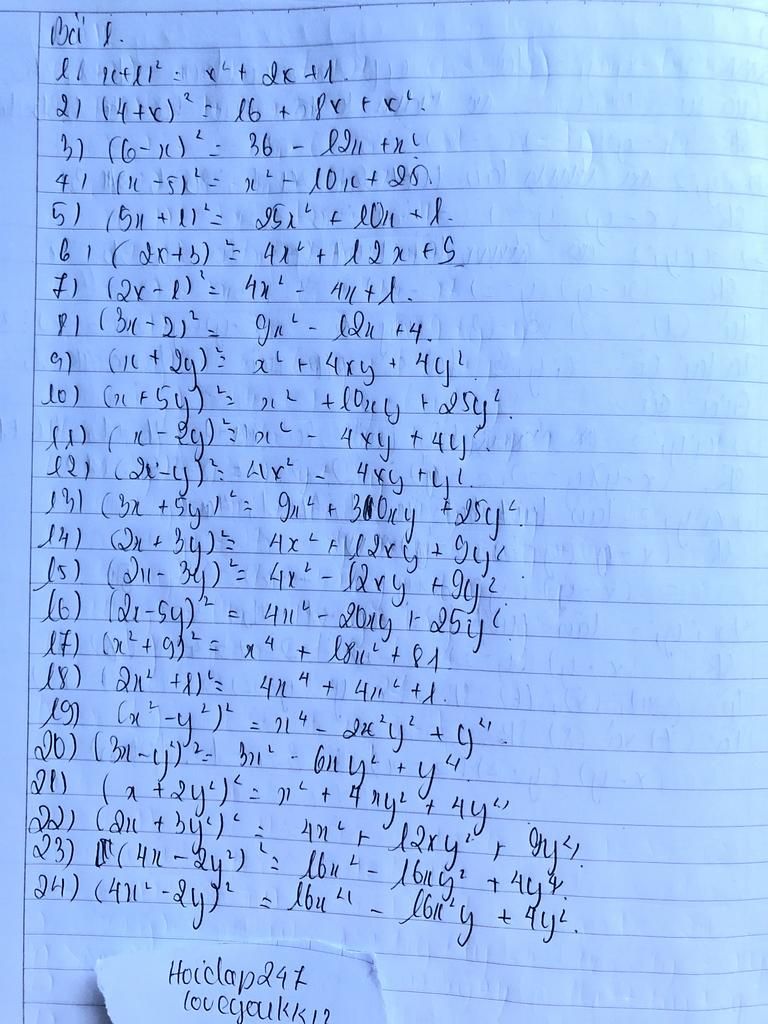 Bài 1.
1) (x+1)² = x² + 2x + 1.
2) (4+x)² = 16 + 8x + x².
3) (6-x)² = 36 - 12x + x²
4) (x-5)² = x² - 10x + 25.
5) (5x+1)² = 25x² + 10x + 1.
6) (2x+3)² = 4x² + 12x + 9
7) (2x-1)² = 4x² - 4x + 1.
8) (3x-2)² = 9x² - 12x + 4.
9) (x+2y)² = x² + 4xy + 4y².
10) (x+5y)² = x² + 10xy + 25y².
11) (x-2y)² = x² - 4xy + 4y².
12) (2x-y)² = 4x² - 4xy + y².
13) (3x+5y)² = 9x² + 30xy + 25y².
14) (2x+3y)² = 4x² + 12xy + 9y²
15) (2x-3y)² = 4x² - 12xy + 9y².
16) (2x-5y)² = 4x² - 20xy + 25y².
17) (x²+9)² = x⁴ + 18x² + 81.
18) (2x²+1)² = 4x⁴ + 4x² + 1.
19) (x²-y²)² = x⁴ - 2x²y² + y⁴.
20) (3x-y²)² = 3x² - 6xy² + y⁴.
21) (x+2y²)² = x² + 4xy² + 4y⁴
22) (2x+3y²)² = 4x² + 12xy² + 9y⁴.
23) (4x-2y²)² = 16x² - 16xy² + 4y⁴.
24) (4x²-2y)² = 16x⁴ - 16x²y + 4y².
Hoidap247
loveyoukk12